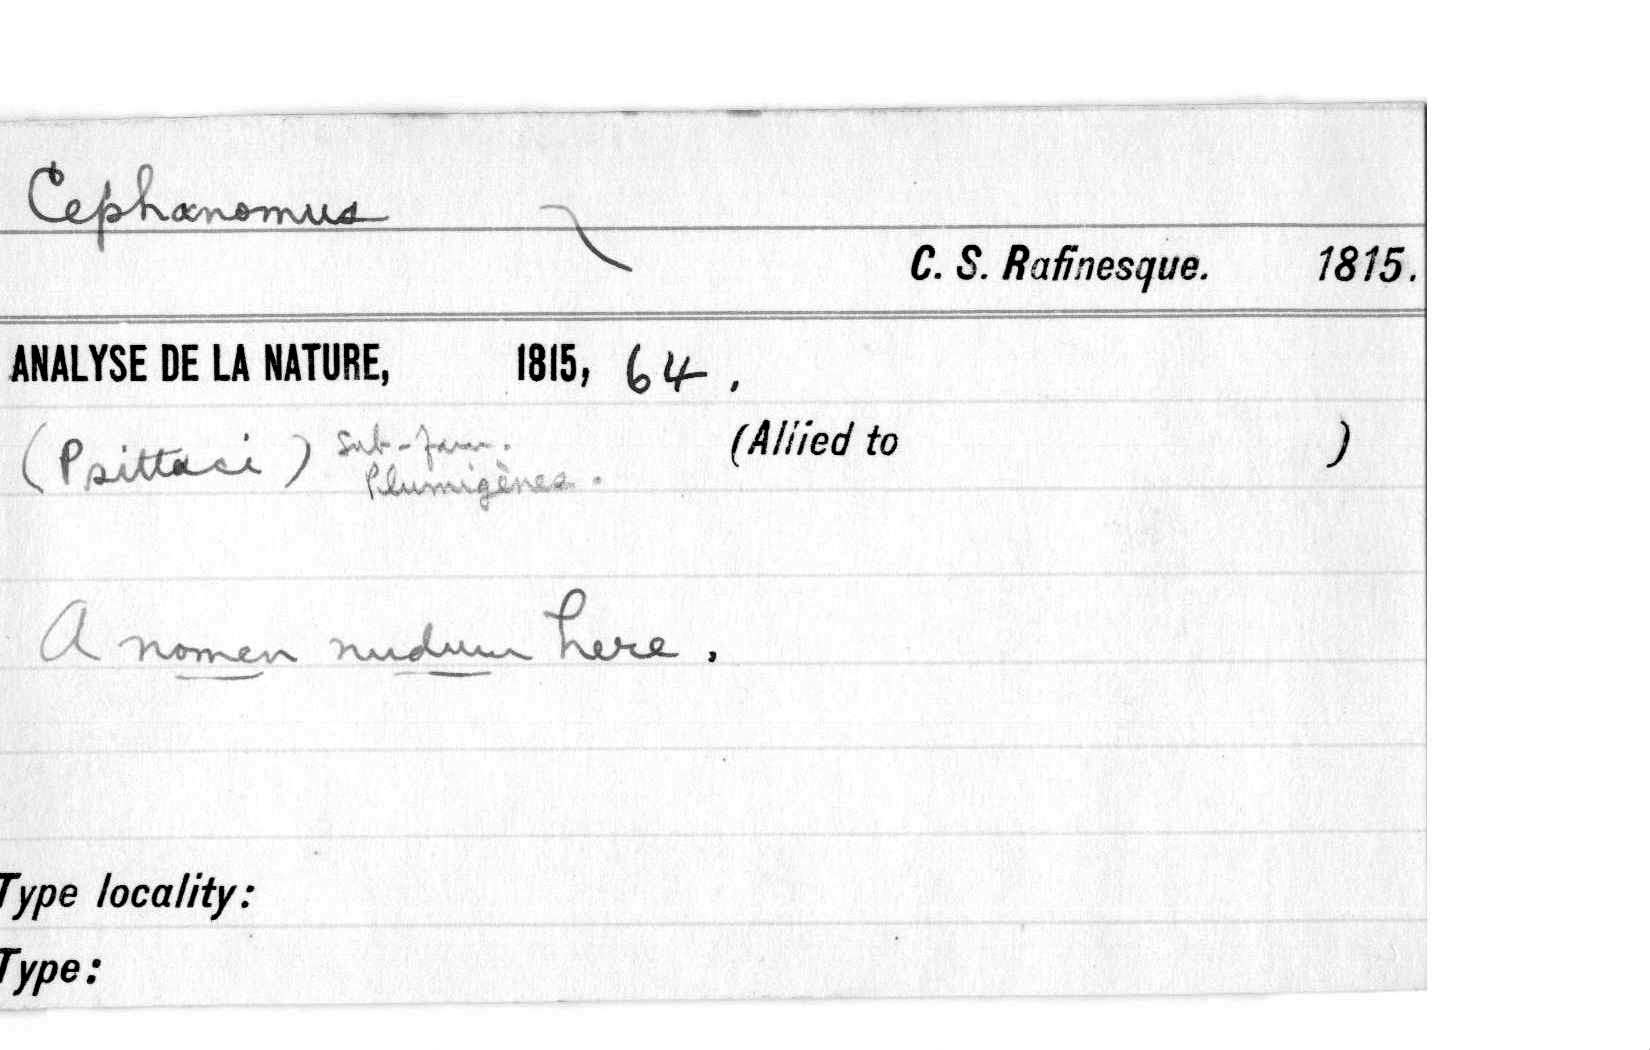 Cephanomus
C. S. Rafinesque. 1815.
ANALYSE DE LA NATURE, 1815, 64.
(Psittaci) Sub-fam. (Allied to )
Plumigènes.
A nomen nudum here.
Type locality:
Type: